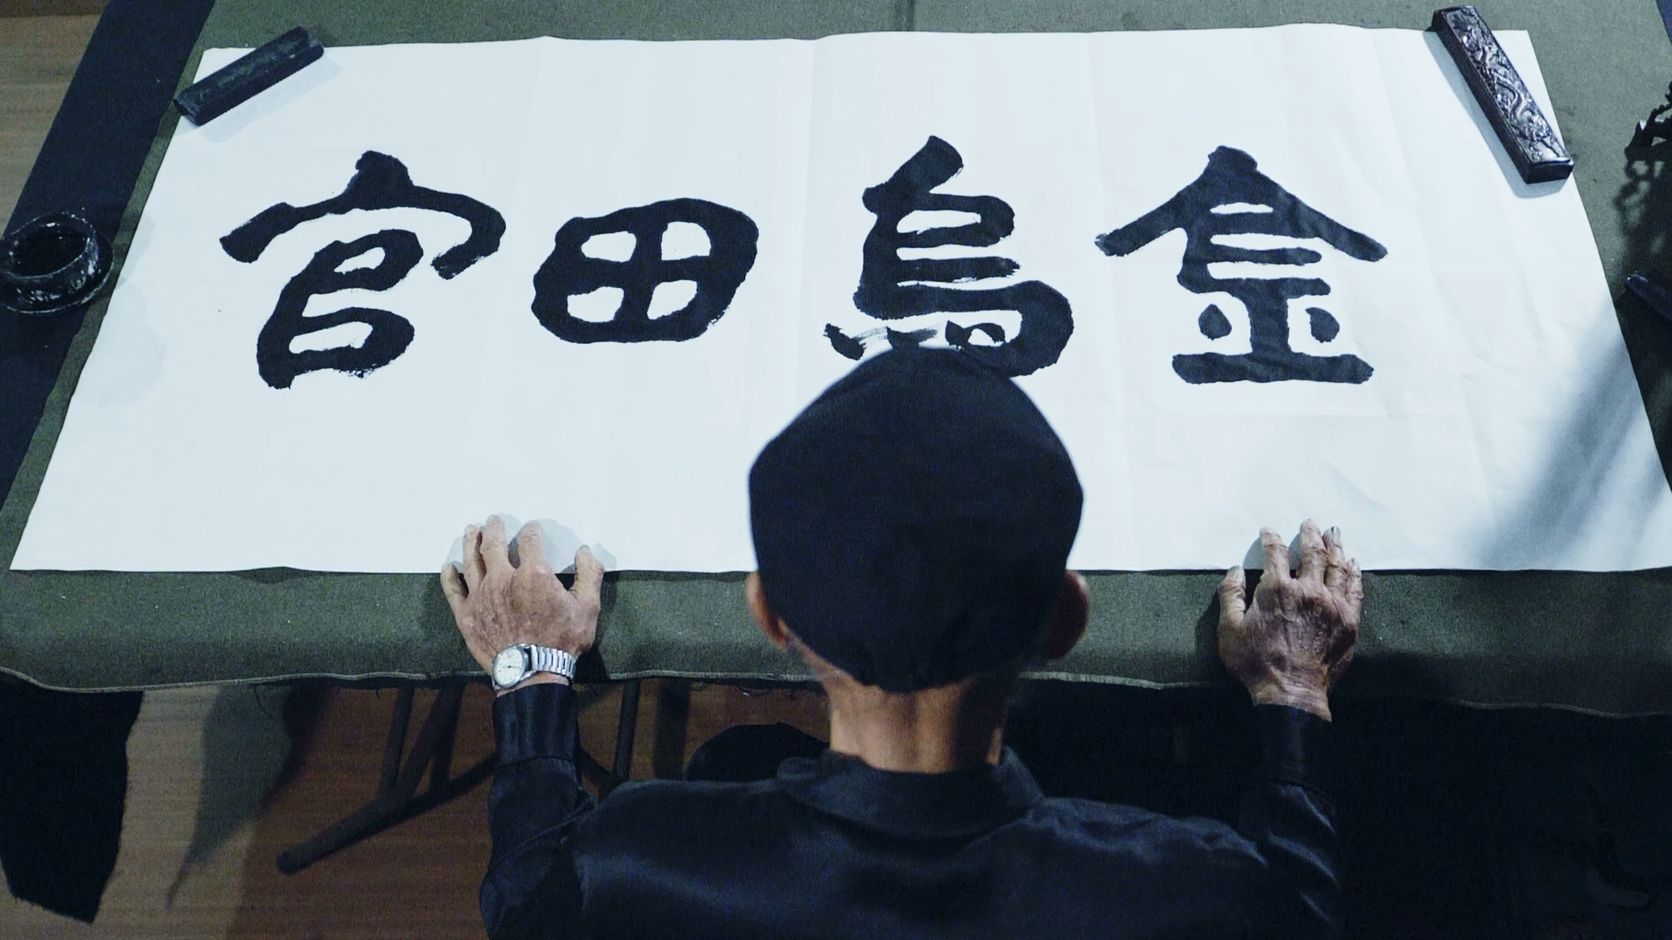 金烏田官